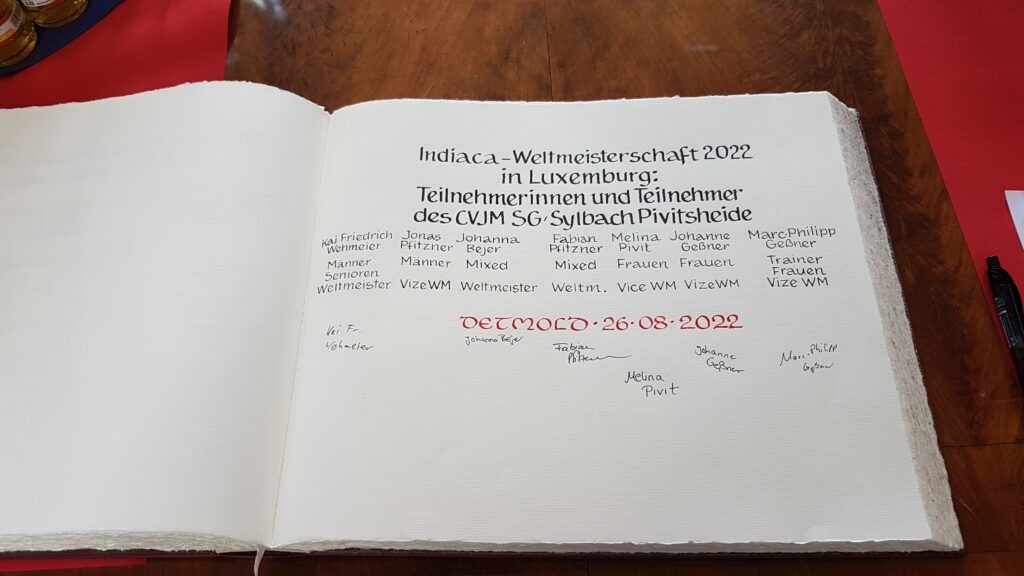 Indiaca-Weltmeisterschaft 2022
in Luxemburg:
Teilnehmerinnen und Teilnehmer
des CVJM SG/Sylbach Pivitsheide
Kai Friedrich Jonas Johanna Fabian Melina Johanne Marc-Philipp
Wehmeier Pfitzner Bejer Pfitzner Pivit Geßner Geßner
Männer Männer Mixed Mixed Frauen Frauen Trainer
Senioren Frauen
Weltmeister VizeWM Weltmeister Weltm. Vice WM VizeWM Vize WM
DETMOLD·26·08·2022
Kai Fr.
Wehmeier
Johanna Bejer
Fabian
Pfitzner
Melina
Pivit
Johanne
Geßner
Marc-Philipp
Geßner